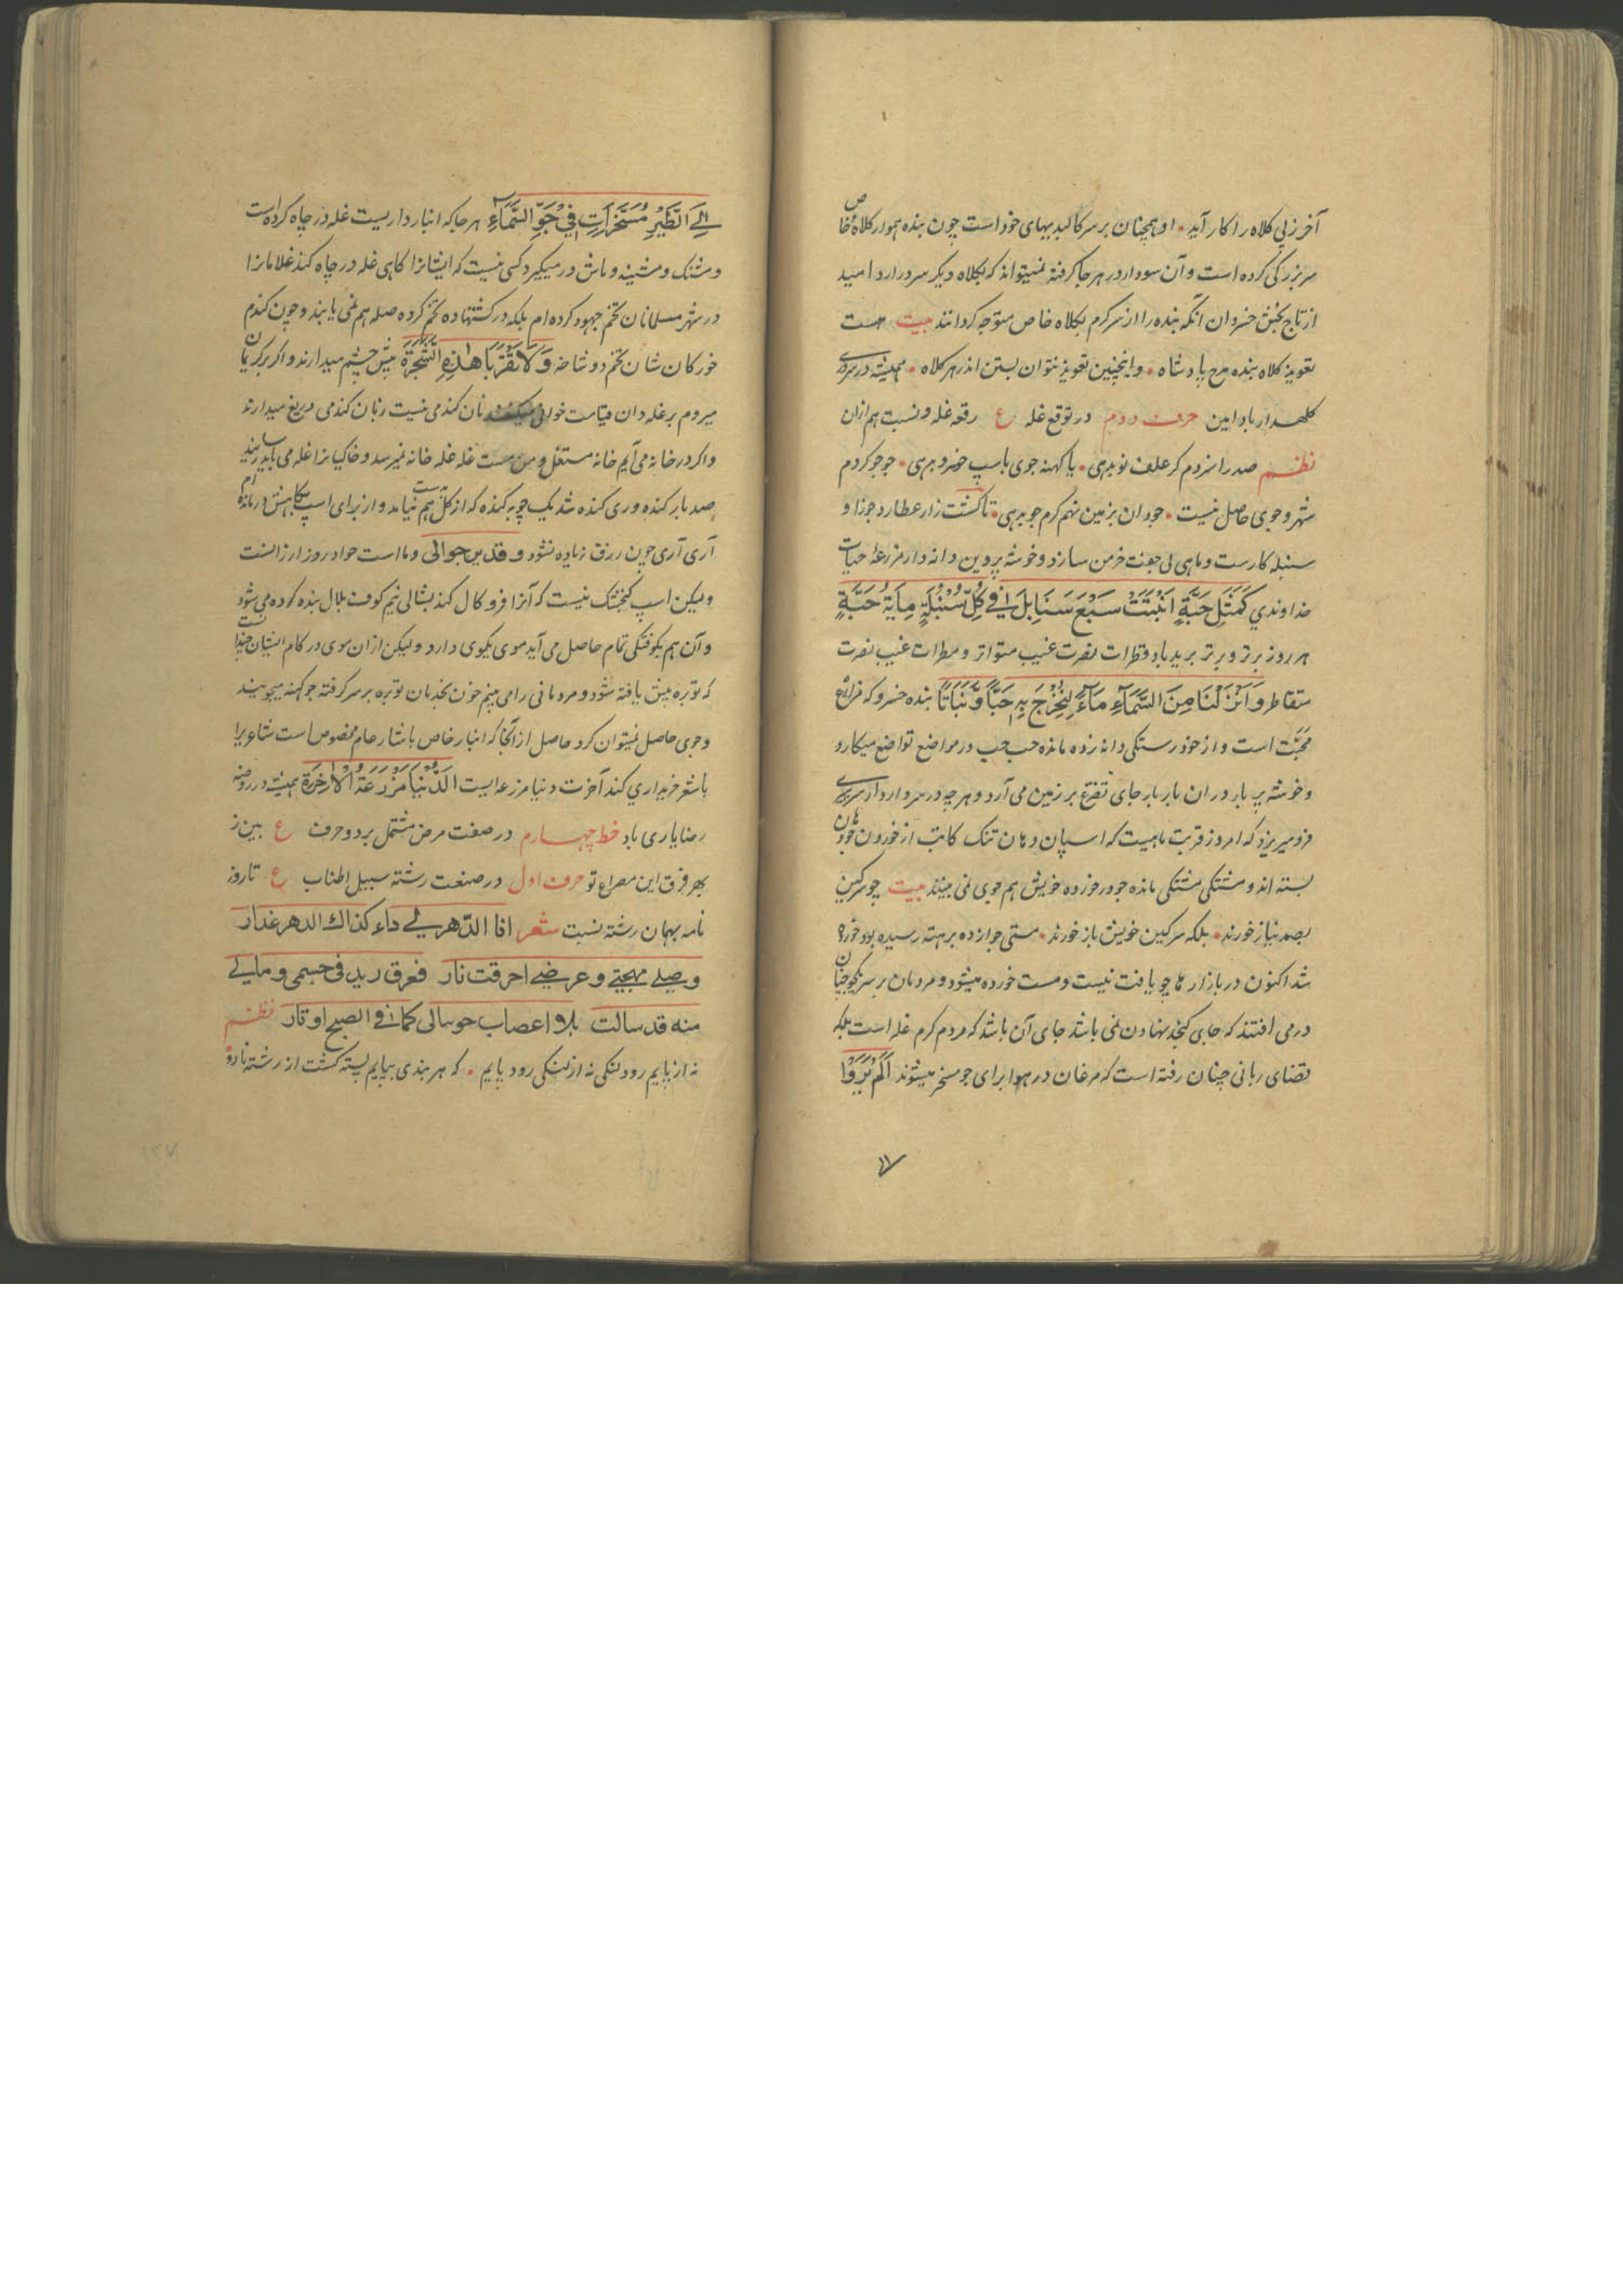 آخر زپی کلاه را کار آید • او همچنان بر سر کالبد بهای خود است چون بنده هموار کلاه خاص
سر بزرگی کرده است و آن سودا در هر جا گرفته نمیتواند که بکلاه دیگر سر در ارد امید
از تاج بخش خسروان آنکه بنده را از سر کرم بکلاه خاص متوجه گردانند بیت هست
تعویذ کلاه بنده مدح پادشاه • وانچنین تعویذ نتوان بستن اندر هر کلاه • همیشه در سروری
کلهدار باد امین حرف دوم در توقع غله ع رقعه غله و نسبت هم ازان
نظم صد را سزدم کر علف نو بدهی • یا کهنه جوی باسپ خسرو بدهی • جوجو کردم
شهر و جوی حاصل نیست • جودان بزمین نهم کرم جو بدهی • تا کشت زار عطارد جوزا و
سنبله کارست و ماهی بی جونت خرمن سازد و خوشه پروین دانه دار مزرعهٔ حیات
خداوندی كَمَثَلِ حَبَّةٍ اَنْبَتَتْ سَبْعَ سَنَابِلَ فِي كُلِّ سُنْبُلَةٍ مِائَةُ حَبَّةٍ
هر روز برتر و برتر بریدباد قطرات نصرت غیب متواتر و مطرات غیب نصرت
متقاطر وَاَنْزَلْنَا مِنَ السَّمَآءِ مَآءً لِنُخْرِجَ بِهِ حَبًّا وَّنَبَاتًا بنده خسرو که مزارع
محبّت است و از خود رستکی دانه زده مانده حب حب در مواضع تواضع میکارد
و خوشه پر بار دران بار بار جای تضرع بر زمین می آرد و هر چه در سر دارد از سر بری
فرو میریزد که امروز قربت ماهیست که اسپان دهان تنک کاتب از خوردن خود دهان
بسته اند و مشتکی مشتکی مانده جو در خورده خویش هم جوی نمی بینند بیت چو سرکین
بصد نیاز خورند • بلکه سرکین خویش باز خورند • مستی جوازده برهته رسیده بود خورا
شد اکنون در بازار ها چو یافت نیست و مست خورده میشود و مردمان بر سر یکو چنان
در می افتند که جای کنجد نهادن نمی باشد جای آن باشد که مردم کرم غله است بلکه
قضای ربانی چنان رفته است که مرغان در هوا برای جو مسخر میشوند اَلَمْ يَرَوْا
اِلَى الطَّيْرِ مُسَخَّرَاتٍ فِي جَوِّ السَّمَآءِ هر جا که انبار داریست غله در چاه کرده است
و مشنک و مشینه و ماش در میکیرد کسی نیست که ایشانرا کاهی غله در چاه کند غلامانرا
در شهر مسلمانان تخم جهود کرده ام بلکه در کشتهاده تخم کرده صله هم نمی یابند و چون کندم
خورکان شان تخم دو شاخه وَلَا تَقْرَبَا هٰذِهِ الشَّجَرَةَ پیش چشم میدارند و اکر بر کریمان
میروم بر غله دان قیامت خوانی میکنند نان کندمی نیست زبان کندمی دریغ میدارند
و اکر در خانه می آیم خانه مستغل و من مست غله غله خانه نمیرسد و خاکیانرا غله می باید رسانید
صد بار کنده وری کنده شد یک چوبه کنده که از کل هم بدست نیامد و از برای اسپ بکاهش در مانده ام
آری آری چون رزق زیاده نشود و قدس جوالی و ما است حواد روز ارزانست
و لیکن اسپ کنجشک نیست که آنرا فرو کال کند بشالی نیم کوفت بلال بنده کوده می شود
و آن هم بکوفتکی تمام حاصل می آید موی یکوی دارد و لیکن ازان موی در کام ایشان چندانست
که توبره میش یافته شود و مردمانی را می بینم خون بخدمان توبره بر سر کرفته جو کهنه میجویند
و جوی حاصل نمیتوان کرد حاصل ازانجا که انبار خاص بانشار عام مخصوص است شاعر یرا
باشعر خریداری کند آخرت دنیا مزرعه ایست اَلدُّنْيَا مَزْرَعَةُ الْاٰخِرَةِ همیشه در روضه
رضا یاری باد خط چهارم در صفت مرض مشتمل بر دو حرف ع ببین ز
بهر فرق این مصراع تو حرف اول در صنعت رشته سبیل اطناب ع تا روز
نامه بهمان رشته نسبت شعر افا الدّهر لي داء كذاك الدهر غدار
و يصلي مهجتي و عرضي احرقت نار فعرق زيد في جسمي و مالي
منه قد سالت بلاو اعصاب حوسالى كما في الصبح اوتار نظم
نه از پایم رود لنکی نه از لنکی رود پایم • که هر بندی بپایم پسته کشت از رشته نارو